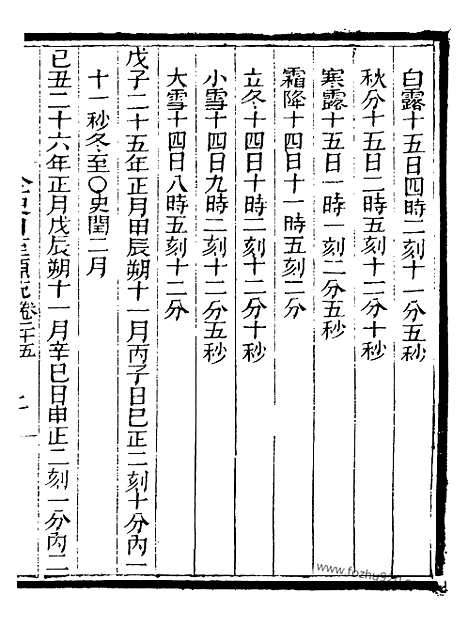 白露十五日四時二刻十一分五秒
秋分十五日二時五刻十二分十秒
寒露十五日一時一刻二分五秒
霜降十四日十一時五刻二分
立冬十四日十時二刻十二分十秒
小雪十四日九時二刻十二分五秒
大雪十四日八時五刻十二分
戊子二十五年正月甲辰朔十一月丙子日巳正二刻十分內一
十一秒冬至○史閏二月
己丑二十六年正月戊辰朔十一月辛巳日申正二刻一分內二
卷二十五
www.fozhu920